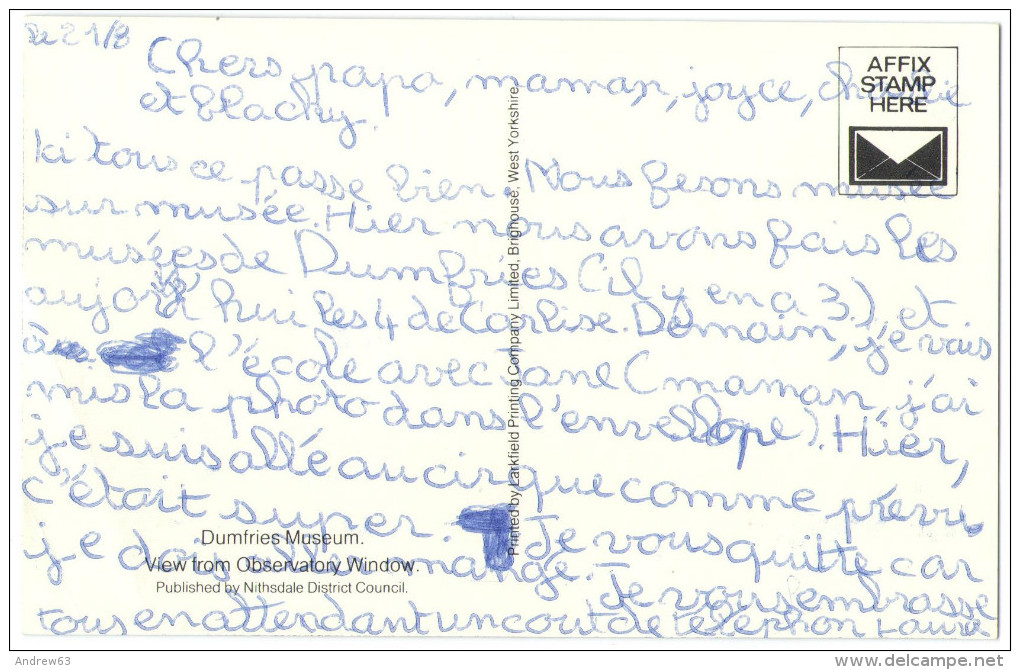 Le 21/8
Chers papa, maman, joyce, charlie
et blacky.
Ici tous ce passe bien. Nous fesons musée
sur musée. Hier nous avons fais les
musées de Dumfries (il y en a 3), et
aujord'hui les 4 de Carlise. Demain, je vais
à l'école avec Jane (maman, j'ai
mis la photo dans l'enveloppe). Hier,
je suis allé au cirque comme prévu
c'était super. Je vous quitte car
je dois aller mange. Je vous embrasse
tous en attendant un cout de télephon Laura
AFFIX
STAMP
HERE
Printed by Larkfield Printing Company Limited, Brighouse, West Yorkshire.
Dumfries Museum.
View from Observatory Window.
Published by Nithsdale District Council.
Andrew63
delcampe.net